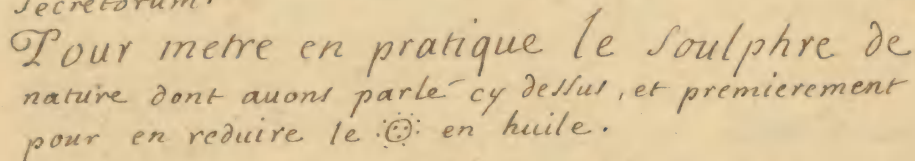 secretorum.
Pour metre en pratique le soulphre de
nature dont auons parlé cy dessus, et premierement
pour en reduire le ☉ en huile.